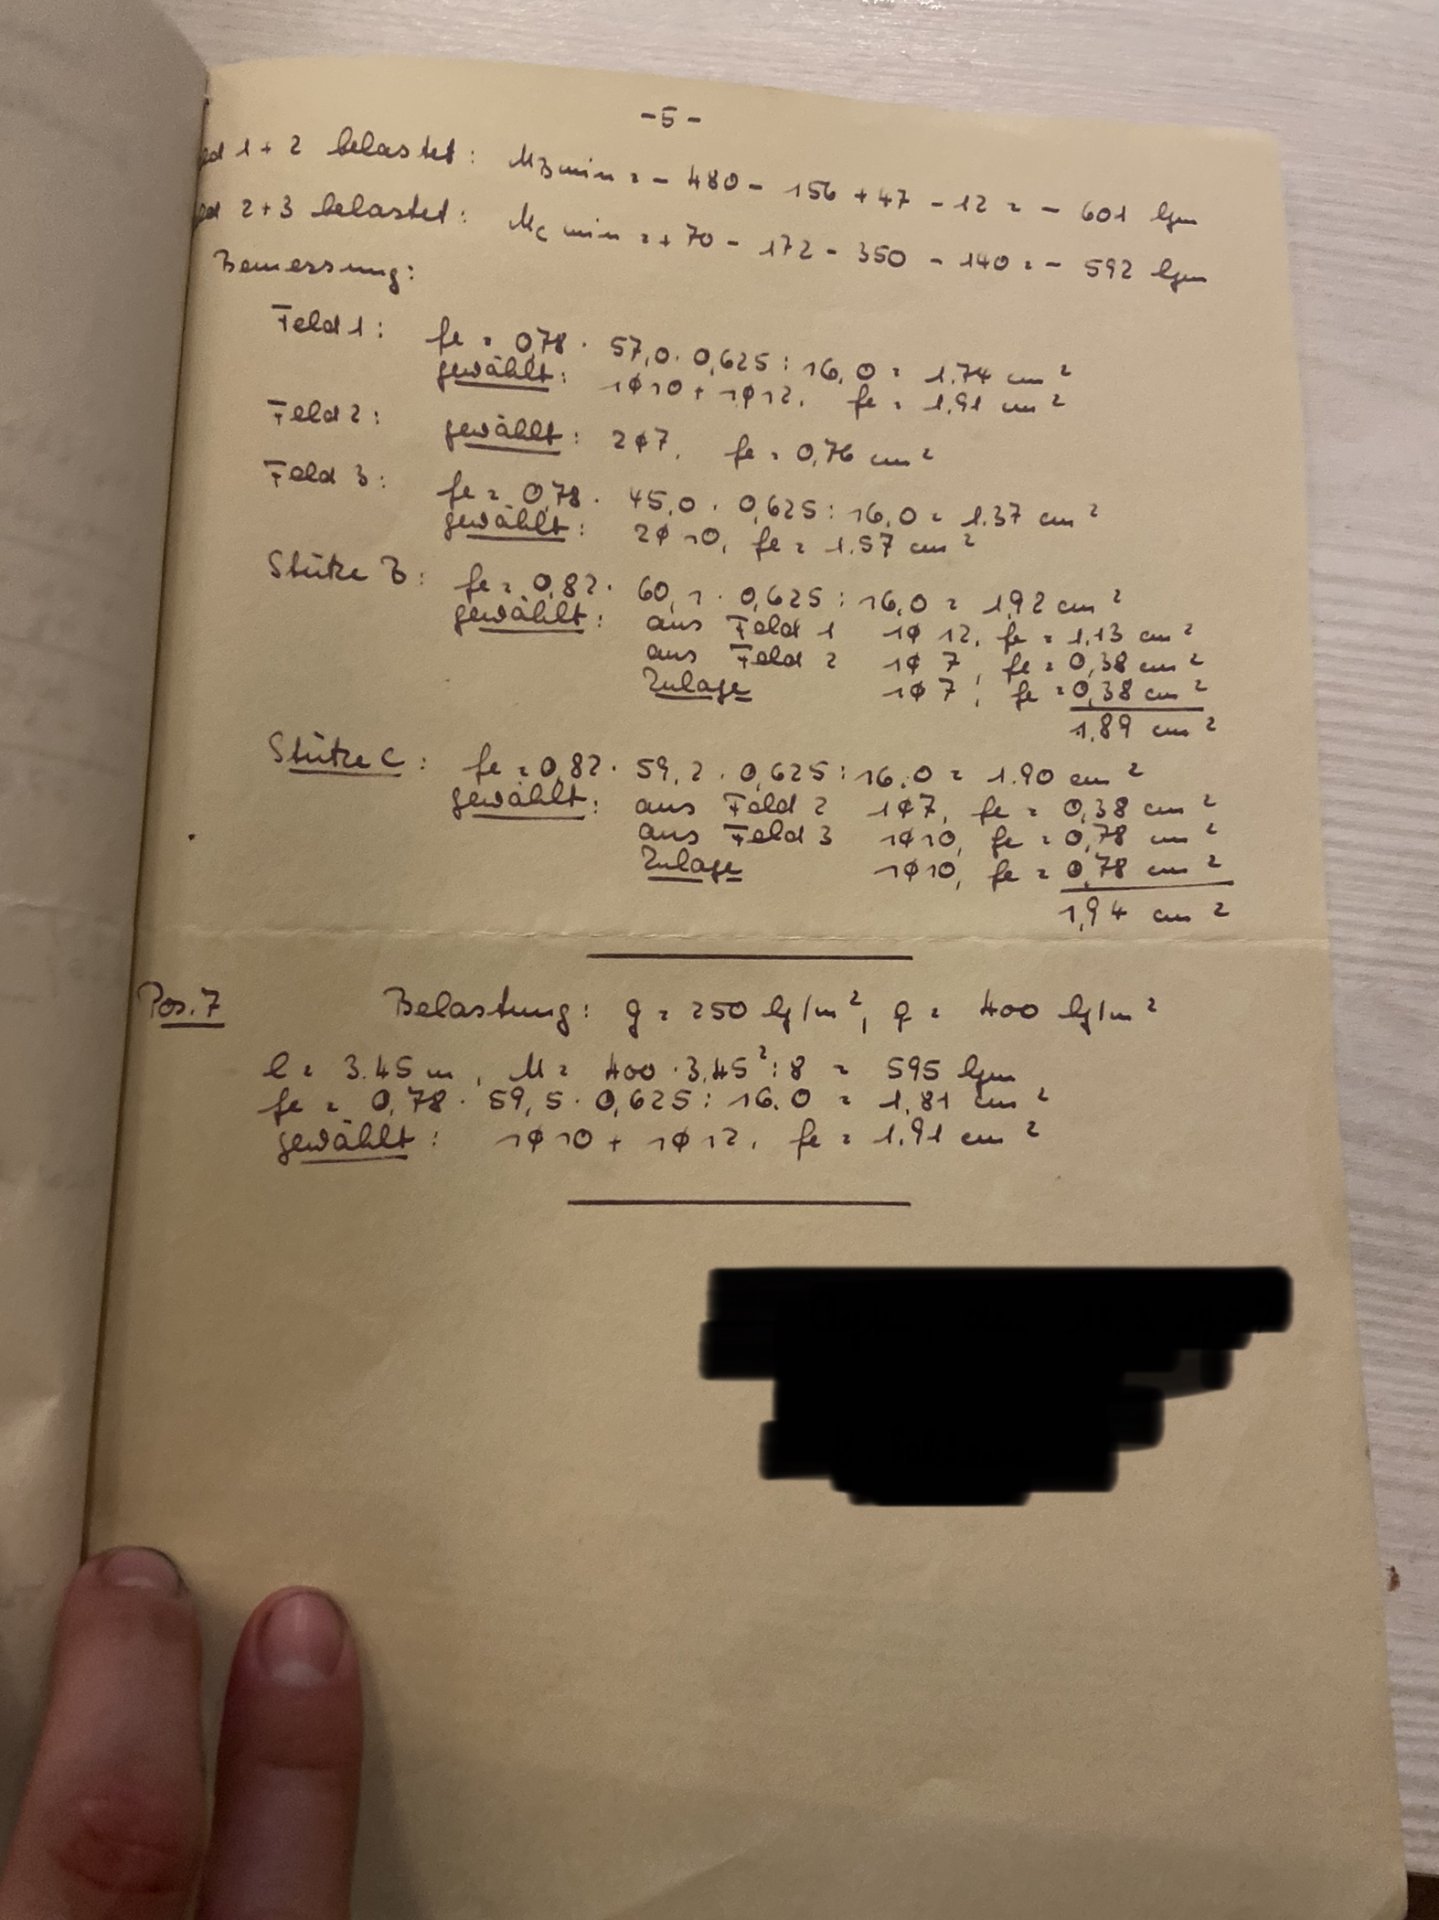 -5-
ld 1+2 belastet: MB min = - 480 - 156 + 47 - 12 = - 601 kgm
ld 2+3 belastet: Mc min = + 70 - 172 - 350 - 140 = - 592 kgm
Bemessung:
Feld 1: fe = 0,78 · 57,0 · 0,625 : 16,0 = 1.74 cm²
gewählt: 1ø10 + 1ø12, fe = 1,91 cm²
Feld 2: gewählt: 2ø7, fe = 0,76 cm²
Feld 3: fe = 0,78 · 45,0 · 0,625 : 16,0 = 1.37 cm²
gewählt: 2ø10, fe = 1.57 cm²
Stütze B: fe = 0,82 · 60,1 · 0,625 : 16,0 = 1,92 cm²
gewählt: aus Feld 1 1ø12, fe = 1,13 cm²
aus Feld 2 1ø7, fe = 0,38 cm²
Zulage 1ø7, fe = 0,38 cm²
1,89 cm²
Stütze C: fe = 0,82 · 59,2 · 0,625 : 16,0 = 1.90 cm²
gewählt: aus Feld 2 1ø7, fe = 0,38 cm²
aus Feld 3 1ø10, fe = 0,78 cm²
Zulage 1ø10, fe = 0,78 cm²
1,94 cm²
Pos. 7 Belastung: g = 250 kg/m², q = 400 kg/m²
l = 3.45 m, M = 400 · 3,45² : 8 = 595 kgm
fe = 0,78 · 59,5 · 0,625 : 16,0 = 1,81 cm²
gewählt: 1ø10 + 1ø12, fe = 1.91 cm²